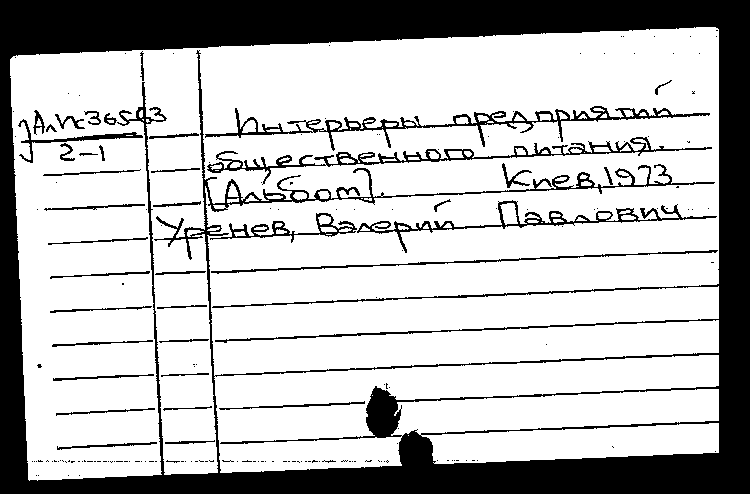 Интерьеры предприятий
2-1
общественного питания.
[Альбом]. Киев, 1973
Уренев, Валерий Павлович